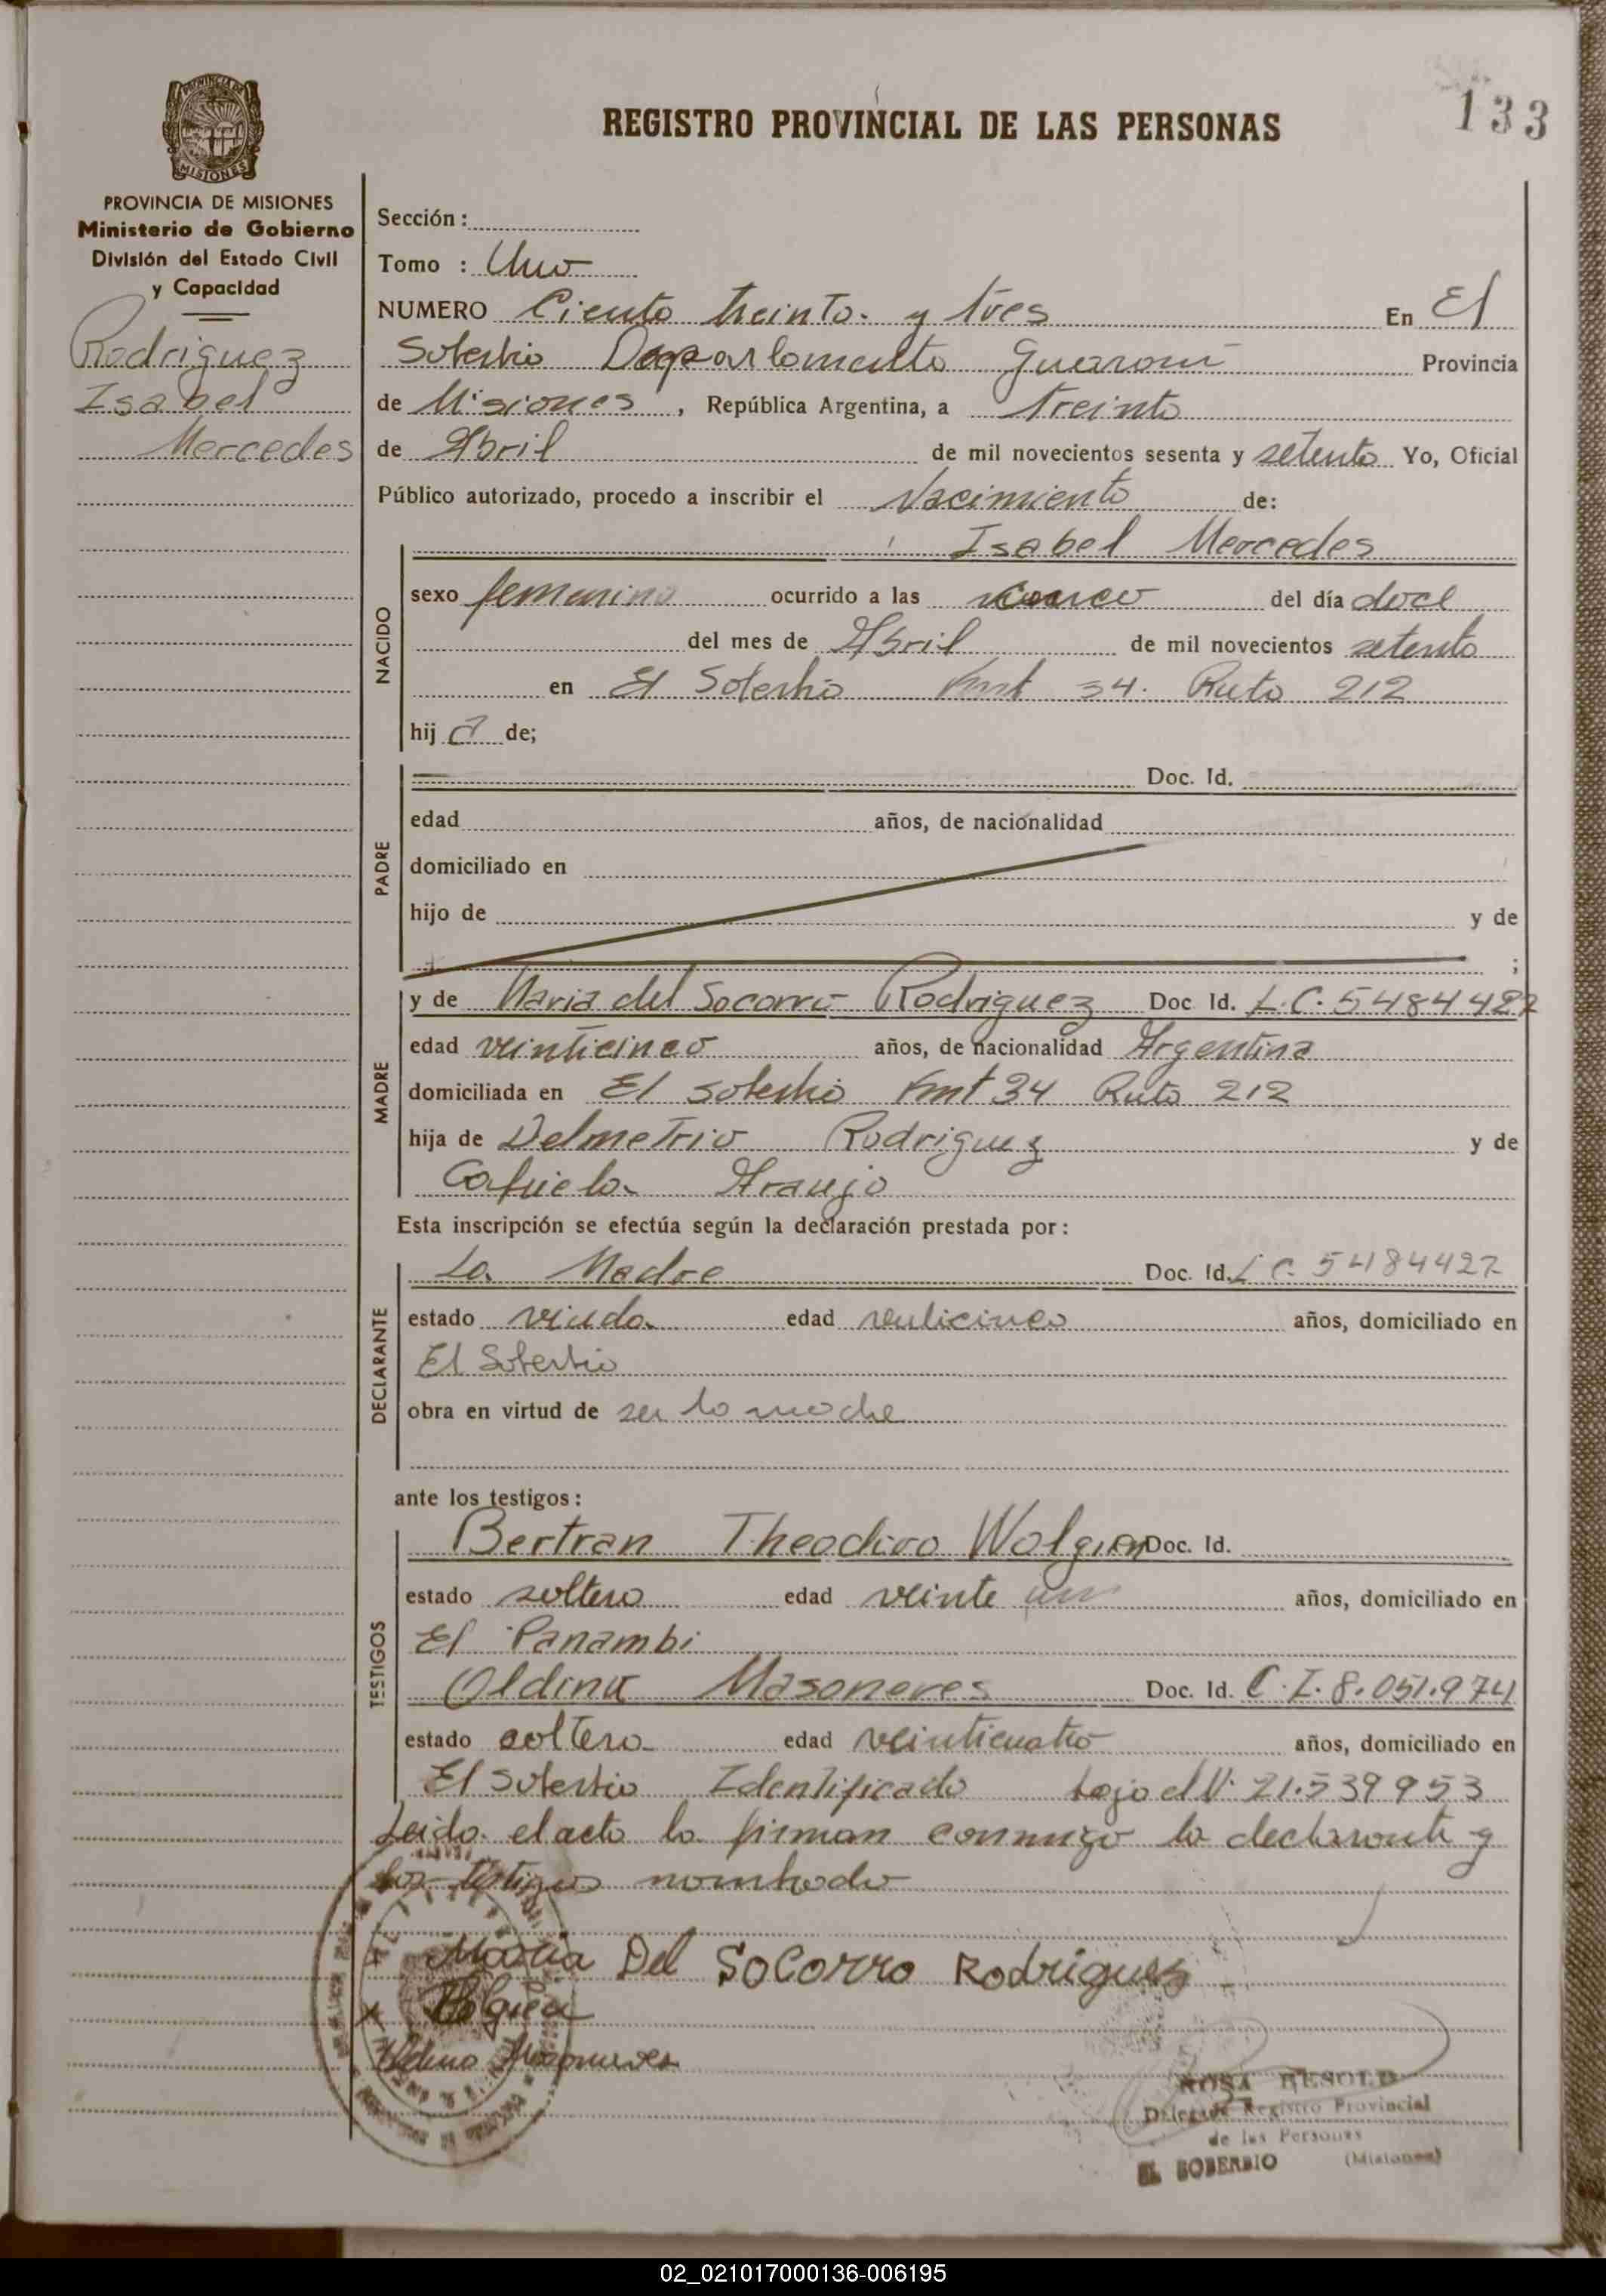 133
REGISTRO PROVINCIAL DE LAS PERSONAS
PROVINCIA DE
MISIONES
PROVINCIA DE MISIONES
Ministerio de Gobierno
División del Estado Civil
y Capacidad
Rodriguez
Isabel
Mercedes
Sección :
Tomo : Uno
NUMERO Ciento treinta y tres En El
Soberbio Departamento Guarani Provincia
de Misiones , República Argentina, a treinta
de Abril de mil novecientos sesenta y setenta Yo, Oficial
Público autorizado, procedo a inscribir el Nacimiento de:
Isabel Mercedes
NACIDO
sexo femenino ocurrido a las del día doce
del mes de Abril de mil novecientos setenta
en El Soberbio Kmt 34. Ruta 212
hij a de;
PADRE
Doc. Id.
edad años, de nacionalidad
domiciliado en
hijo de y de
;
MADRE
y de Maria del Socorro Rodriguez Doc Id. L.C. 5484427
edad veinticinco años, de nacionalidad Argentina
domiciliada en El Soberbio Kmt 34 Ruta 212
hija de Delmetrio Rodriguez y de
Araujo
Esta inscripción se efectúa según la declaración prestada por :
DECLARANTE
La Madre Doc. Id. L C. 5484427
estado viuda edad veinticinco años, domiciliado en
El Soberbio
obra en virtud de ser la madre
ante los testigos :
TESTIGOS
Bertran Theodoro Wolgien Doc. Id.
estado soltero edad veinte un años, domiciliado en
El Panambi
Oldino Masoneves Doc. Id. C.I. 8.051.974
estado soltero edad veinticuatro años, domiciliado en
El Soberbio Identificado bajo el Nº 21.539953
Leida el acta la firman conmigo la declarante y
los testigos nombrado
Maria Del SoCorro Rodrigues
ROSA BESOLD
Delegado Registro Provincial
de las Personas
EL SOBERBIO (Misiones)
02_021017000136-006195